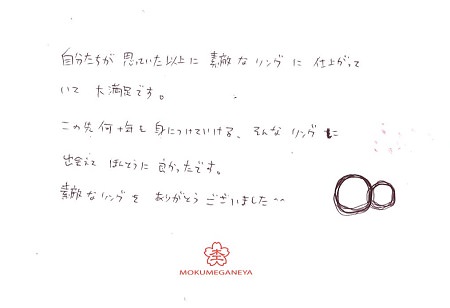 自分たちが思っていた以上に素敵なリングに仕上がって
いて大満足です。
この先何十年も身につけていける、そんなリングに
出会えてほんとうに良かったです。
素敵なリングをありがとうございました^^
MOKUMEGANEYA